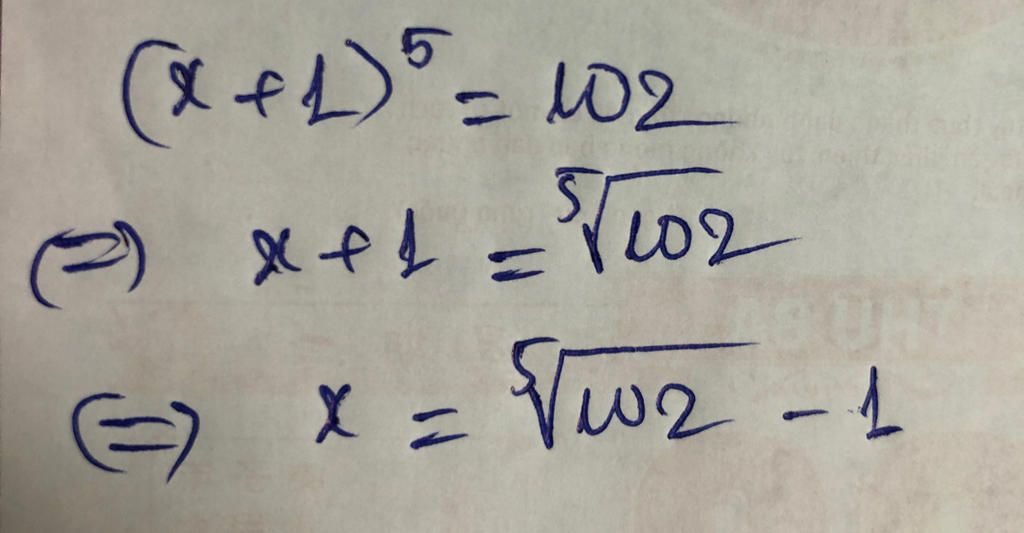 (x+1)⁵ = 102
(=) x+1 = ⁵√102
(=) x = ⁵√102 - 1